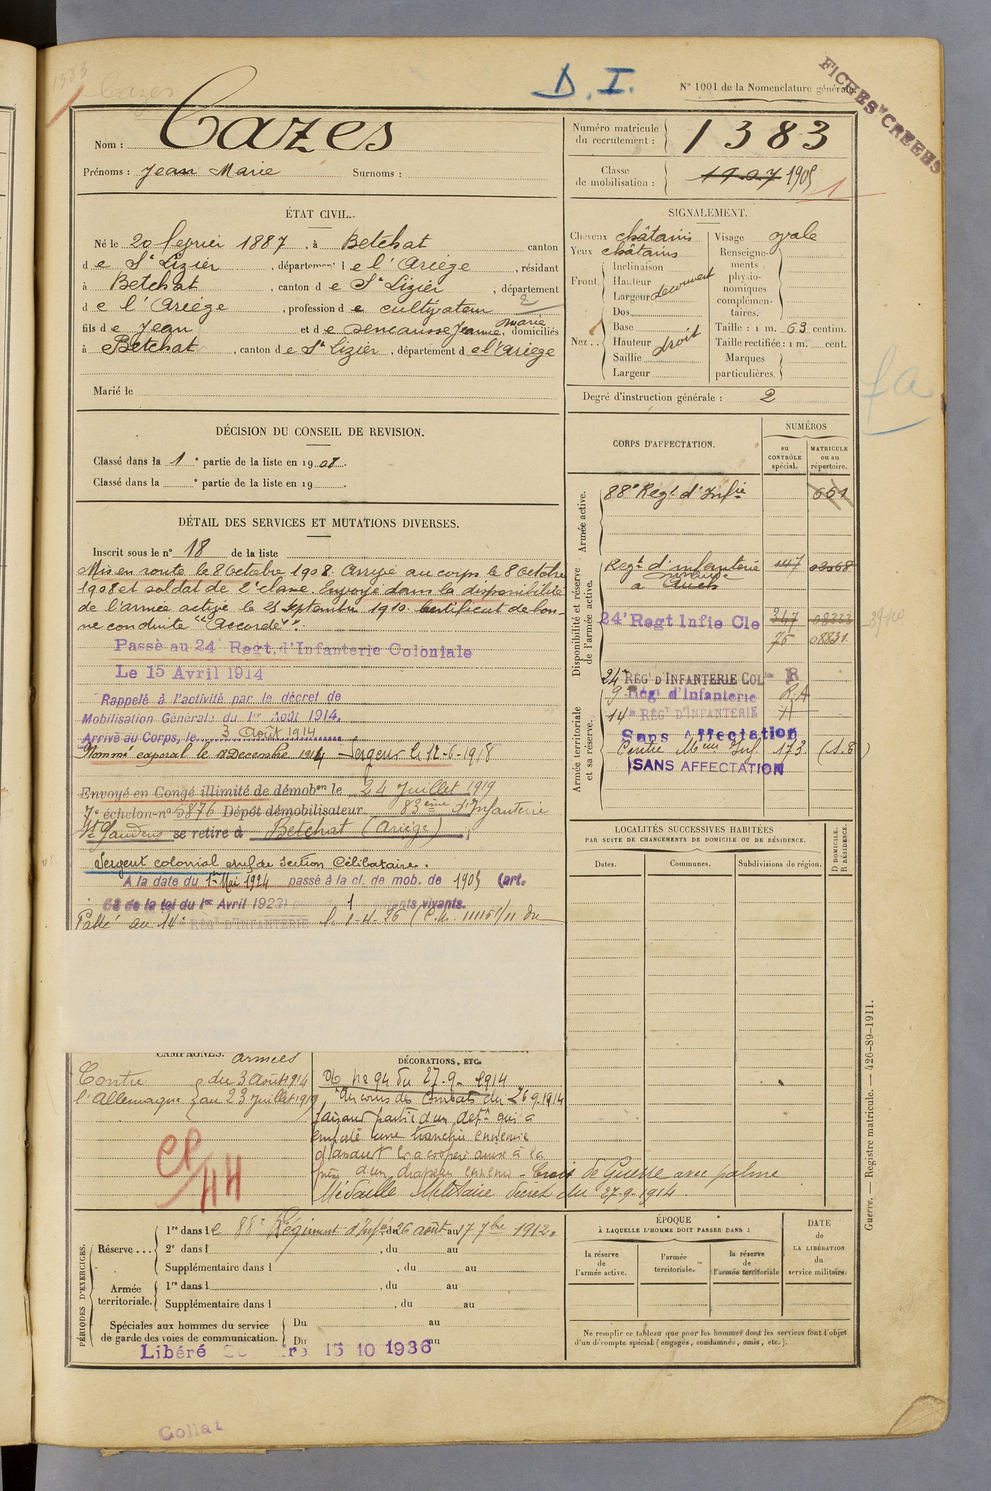 D. I.
N° 1001 de la Nomenclature générale
FICHES CREEES
1383
Cazes
Nom : Cazes
Prénoms : Jean Marie Surnoms :
Numéro matricule du recrutement : 1383
Classe de mobilisation : 1907 1905
1
ÉTAT CIVIL.
Né le 20 février 1887, à Betchat canton
de St Lizier, département de l'Ariège, résidant
à Betchat, canton de St Lizier, département
de l'Ariège, profession de cultivateur
fils de Jean et de Sencausse Jeanne, Marie domiciliés
à Betchat, canton de St Lizier, département de l'Ariège
Marié le
SIGNALEMENT.
Cheveux châtains
Yeux châtains
Front
Inclinaison
Hauteur
Largeur découvert
Nez
Dos
Base
Hauteur droit
Saillie
Largeur
Visage ovale
Renseignements physionomiques complémentaires.
Taille : 1 m. 63 centim.
Taille rectifiée : 1 m. cent.
Marques particulières.
Degré d'instruction générale : 2
DÉCISION DU CONSEIL DE REVISION.
Classé dans la 1e partie de la liste en 1908.
Classé dans la e partie de la liste en 19
DÉTAIL DES SERVICES ET MUTATIONS DIVERSES.
Inscrit sous le n° 18 de la liste
Mis en route le 8 Octobre 1908. Arrivé au corps le 8 Octobre
1908 et soldat de 2e classe. Envoyé dans la disponibilité
de l'armée active le 25 Septembre 1910. Certificat de bon-
ne conduite "Accordé".
Passé au 24e Regt. d'Infanterie Coloniale
Le 15 Avril 1914
Rappelé à l'activité par le décret de
Mobilisation Générale du 1er Août 1914.
Arrivé au Corps, le 3 Août 1914
Nommé caporal le Décembre 1914 - Sergent le 12-6-1918
Envoyé en Congé illimité de démobon le 24 Juillet 1919
7e échelon n° 5876 Dépôt démobilisateur 83ème d'Infanterie
St Gaudens se retire à Betchat (Ariège)
Sergent colonial chef de section Célibataire.
A la date du 1er Mai 1924 passé à la cl. de mob. de 1905 (art.
58 de la loi du 1er Avril 1923) 1 enfants vivants.
Passé au 14e REGt D'INFANTERIE
CORPS D'AFFECTATION.
NUMÉROS
au CONTRÔLE spécial.
MATRICULE ou au répertoire.
Armée active.
88e Regt d'Infie 661
Disponibilité et réserve de l'armée active.
Regt d'infanterie 447 02068
à Auch
24e Regt Infie Cle 347 08333
75 08831
Armée territoriale et sa réserve.
24e REGt D'INFANTERIE COLle R
9e Régt d'Infanterie R.A
14e REGt D'INFANTERIE
Sans Affectation
Centre Inf. 173 (S.B)
SANS AFFECTATION
fa
LOCALITÉS SUCCESSIVES HABITÉES
PAR SUITE DE CHANGEMENTS DE DOMICILE OU DE RÉSIDENCE.
Dates. Communes. Subdivisions de région. D DOMICILE. R RÉSIDENCE.
CAMPAGNES. armées
Contre l'Allemagne du 3 Août 1914
au 23 Juillet 1919
DÉCORATIONS, ETC.
du 27-9-1914
Au cours des combats du 26 9 1914
faisant partie d'un dett qui a
enlevé une tranchée ennemie
d'assaut et a coopéré ainsi à la
prise d'un drapeau ennemi - Croix de Guerre avec palme
Médaille Militaire décret du 27.9.1914.
44
PÉRIODES D'EXERCICES.
Réserve...
1re dans le 88e Régiment d'Infie du 26 août au 17 7bre 1912.
2e dans l , du au
Supplémentaire dans l , du au
Armée territoriale.
1re dans l , du au
Supplémentaire dans l , du au
Spéciales aux hommes du service de garde des voies de communication.
Du au
Du au
Libéré 15 10 1936
ÉPOQUE
À LAQUELLE L'HOMME DOIT PASSER DANS :
la réserve de l'armée active.
l'armée territoriale.
la réserve de l'armée territoriale
DATE de LA LIBÉRATION du service militaire.
Ne remplir ce tableau que pour les hommes dont les services font l'objet
d'un décompte spécial (engagés, condamnés, omis, etc.).
Guerre. — Registre matricule. — 426-89-1911.
Collat